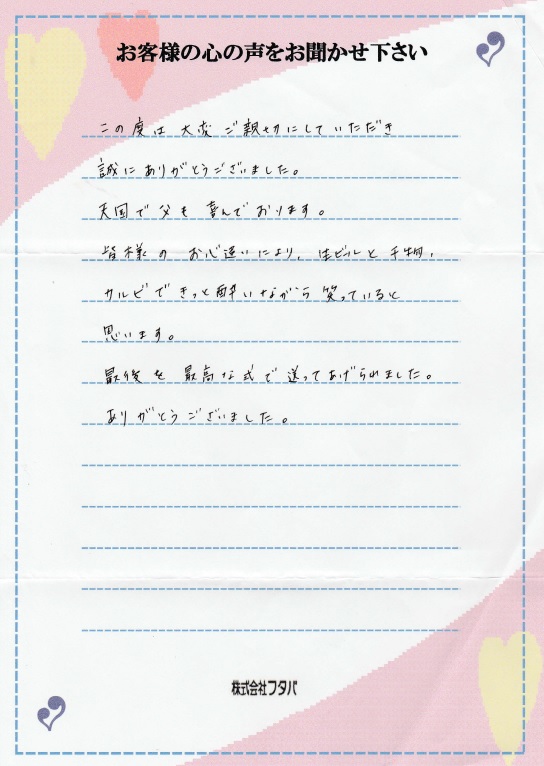 お客様の心の声をお聞かせ下さい
この度は 大変 ご親切にして いただき
誠に ありがとうございました。
天国で 父も 喜んで おります。
皆様の お心遣いにより、生ビールと 干物、
カルビで きっと 酔いながら 笑っていると
思います。
最後を 最高な式で 送ってあげられました。
ありがとうございました。
株式会社フタバ